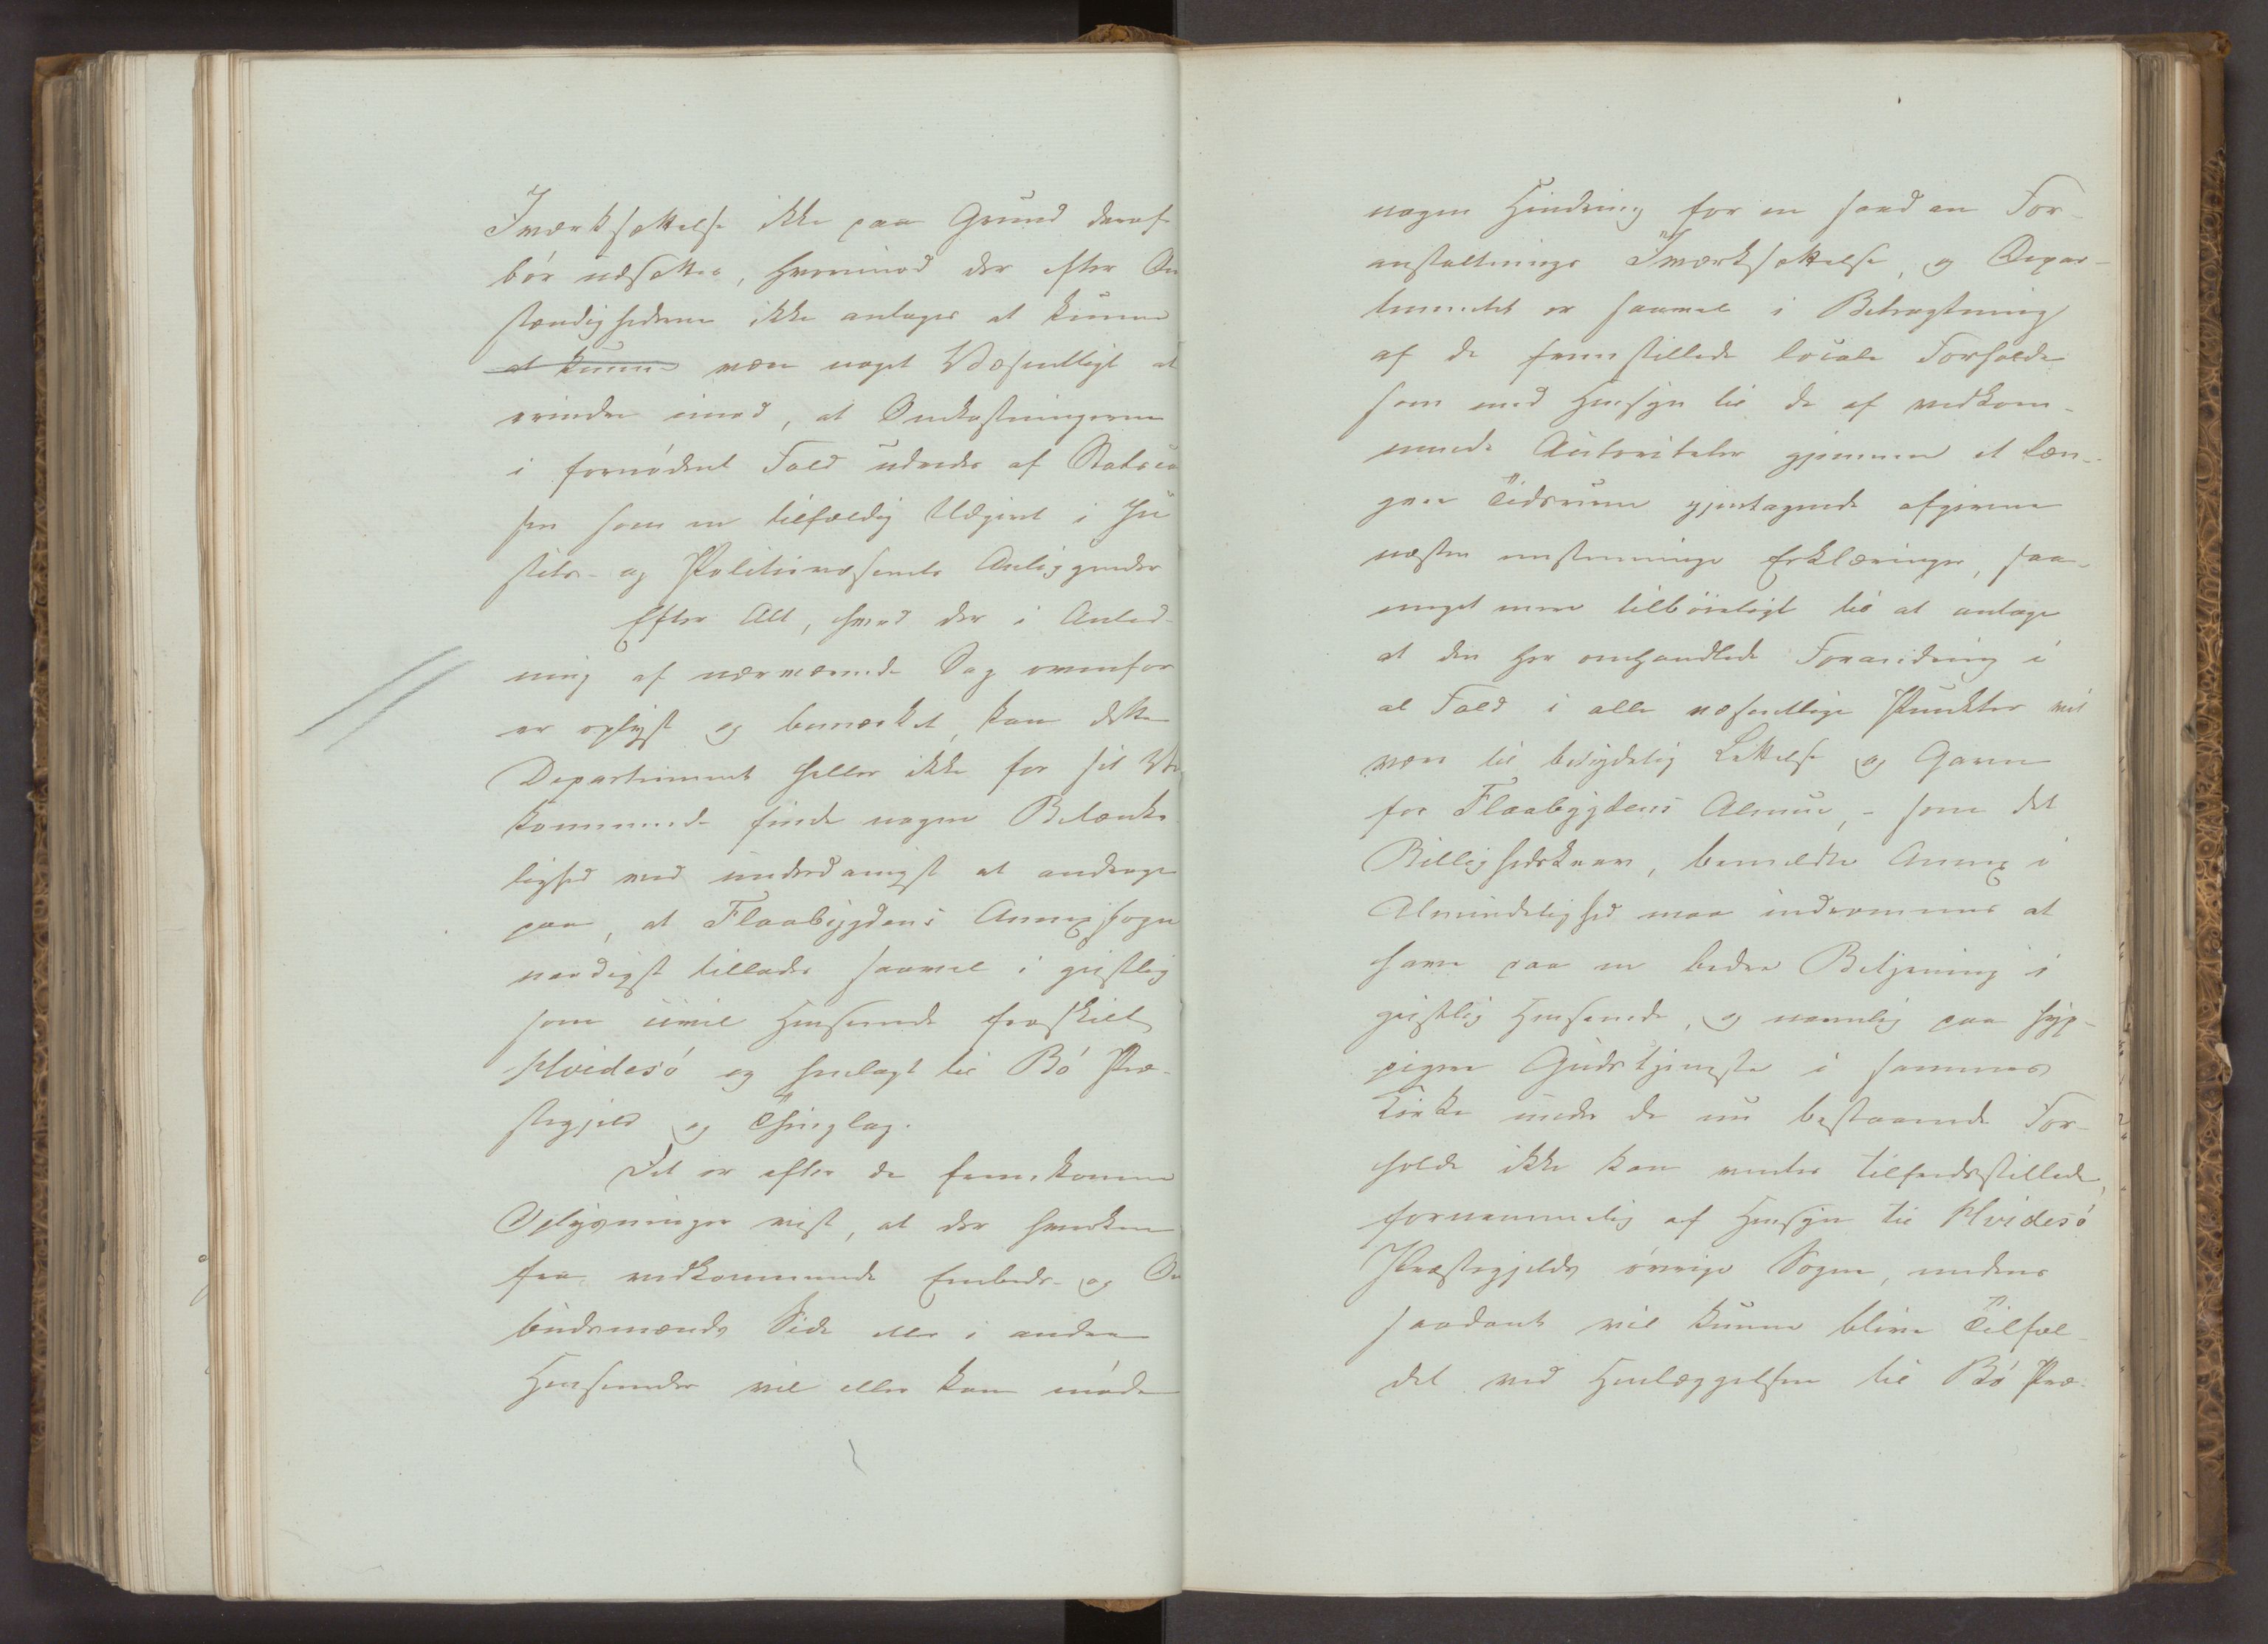 Iværksættelse ikke paa Grund deraf
bör udsættes, hvorimod der efter Om
stændighederne ikke antages at kunne
at kunne være noget Væsentligt at
erindre imod, at Omkostningerne
i fornödent Fald udredes af Statscas
sen som en tilfældig Udgivt i Ju
stits- og Politievæsenets Anliggender
Efter Alt, hvad der i Anled-
ning af nærværende Sag ovenfor
er oplyst og bemærket, kan dette
Departement heller ikke for sit Ved
kommende finde nogen Betænke
lighed ved underdanigst at andrage
paa, at Flaabygdens Annexsogn
naadigst tillades saavel i geistlig
som civil Henseende fraskilt
Hvidesö og henlagt til Bö Præ-
stegjeld og Thinglag.
Det er efter de fremkomne
Oplysninger vist, at der hverken
fra vedkommende Embeds- og Om
budsmænds Side eller i andre
Henseender vil eller kan möde
nogen Hindring for en saadan For-
anstaltnings Iværksættelse, og Depar-
tementet er saavel i Betragtning
af de fremstillede locale Forholde
som med Hensyn til de af vedkom-
mende Autoriteter gjennem et læn-
gere Tidsrum gjentagende afgivne
næsten enstemmige Erklæringer, saa
meget mere tilböieligt til at antage
at den her omhandlede Forandring i
al Fald i alle væsentlige Punkter vil
være til betydelig Lettelse og Gavn
for Flaabygdens Almue, - som det
Billighedskrav, bemeldte Annex i
Almindelighed maa indrömmes at
have paa en bedre Betjening i
geistlig Henseende, og navnlig paa hyp-
pigere Gudstjeneste i sammes
Kirke under de nu bestaaende For-
holde ikke kan ventes tilfredsstillede,
fornemmelig af Hensyn til Hvidesö
Præstegjelds övrige Sogne, medens
saadant vil kunne blive Tilfæl-
det ved Henlæggelsen til Bö Præ-